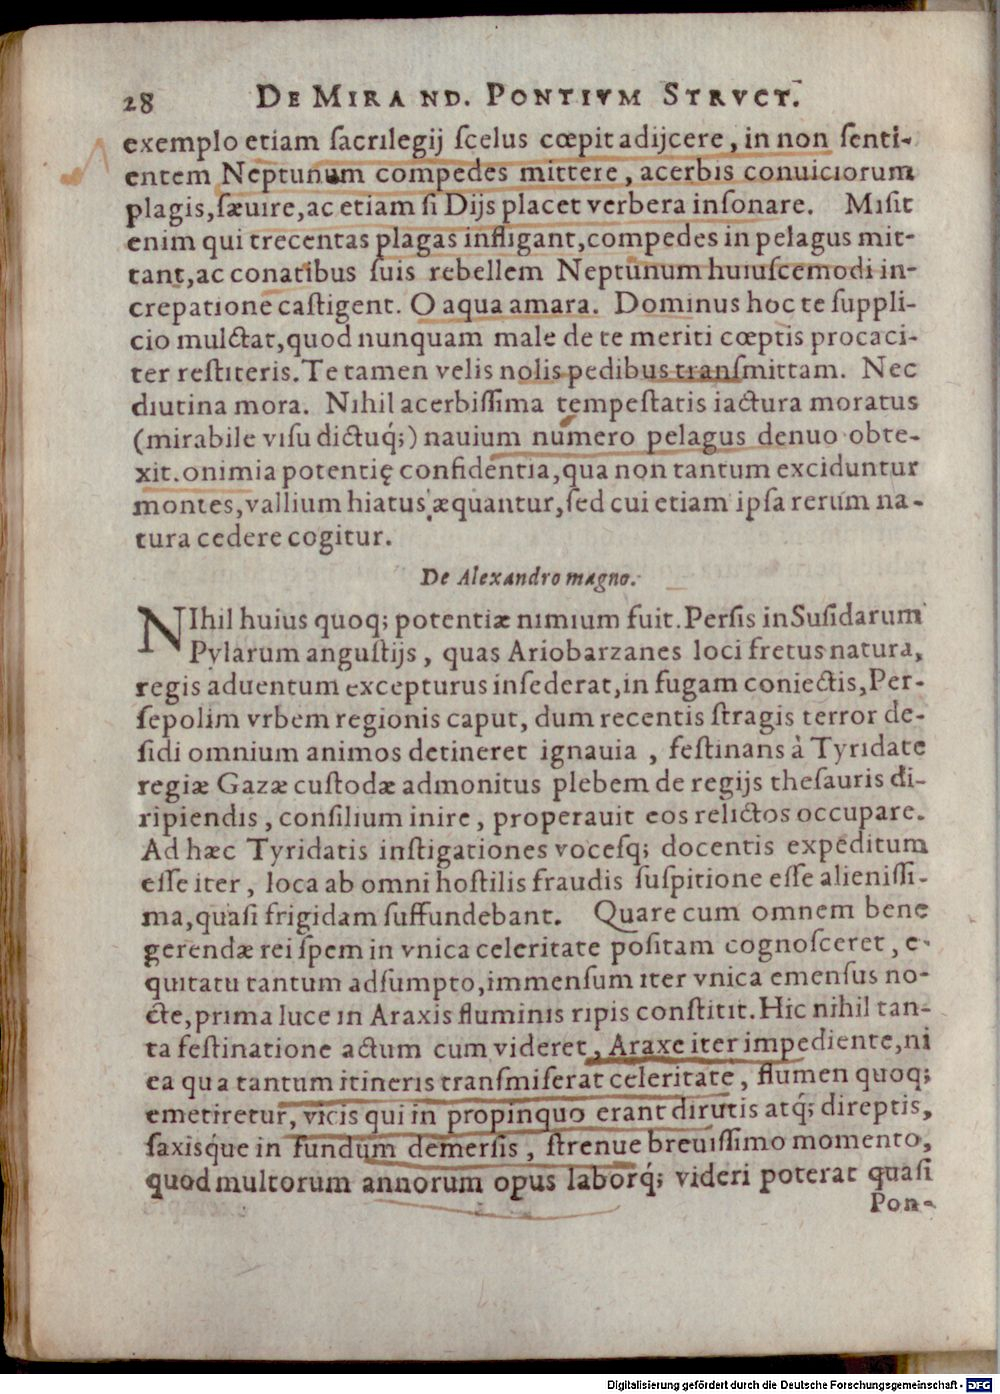 28 DE MIRAND. PONTIVM STRVCT.
exemplo etiam ſacrilegij ſcelus cœpit adijcere, in non ſenti-
entem Neptunum compedes mittere, acerbis conuiciorum
plagis, ſæuire, ac etiam ſi Dijs placet verbera inſonare. Miſit
enim qui trecentas plagas infligant, compedes in pelagus mit-
tant, ac conatibus ſuis rebellem Neptunum huiuſcemodi in-
crepatione caſtigent. O aqua amara. Dominus hoc te ſuppli-
cio mulctat, quod nunquam male de te meriti cœptis procaci-
ter reſtiteris. Te tamen velis nolis pedibus tranſmittam. Nec
diutina mora. Nihil acerbiſſima tempeſtatis iactura moratus
(mirabile viſu dictuq́;) nauium numero pelagus denuo obte-
xit. o nimia potentię confidentia, qua non tantum exciduntur
montes, vallium hiatus æquantur, ſed cui etiam ipſa rerum na-
tura cedere cogitur.
De Alexandro magno.
NIhil huius quoq; potentiæ nimium fuit. Perſis in Suſidarum
Pylarum anguſtijs, quas Ariobarzanes loci fretus natura,
regis aduentum excepturus inſederat, in fugam coniectis, Per-
ſepolim vrbem regionis caput, dum recentis ſtragis terror de-
ſidi omnium animos detineret ignauia, feſtinans à Tyridate
regiæ Gazæ cuſtodæ admonitus plebem de regijs theſauris di-
ripiendis, conſilium inire, properauit eos relictos occupare.
Ad hæc Tyridatis inſtigationes voceſq; docentis expeditum
eſſe iter, loca ab omni hoſtilis fraudis ſuſpitione eſſe alieniſſi-
ma, quaſi frigidam ſuffundebant. Quare cum omnem bene
gerendæ rei ſpem in vnica celeritate poſitam cognoſceret, e-
quitatu tantum adſumpto, immenſum iter vnica emenſus no-
cte, prima luce in Araxis fluminis ripis conſtitit. Hic nihil tan-
ta feſtinatione actum cum videret, Araxe iter impediente, ni
ea qua tantum itineris tranſmiſerat celeritate, flumen quoq;
emetiretur, vicis qui in propinquo erant dirutis atq́; direptis,
ſaxisq́ue in fundum demerſis, ſtrenue breuiſſimo momento,
quod multorum annorum opus laborq́; videri poterat quaſi
Pon-
Digitalisierung gefördert durch die Deutsche Forschungsgemeinschaft - DFG